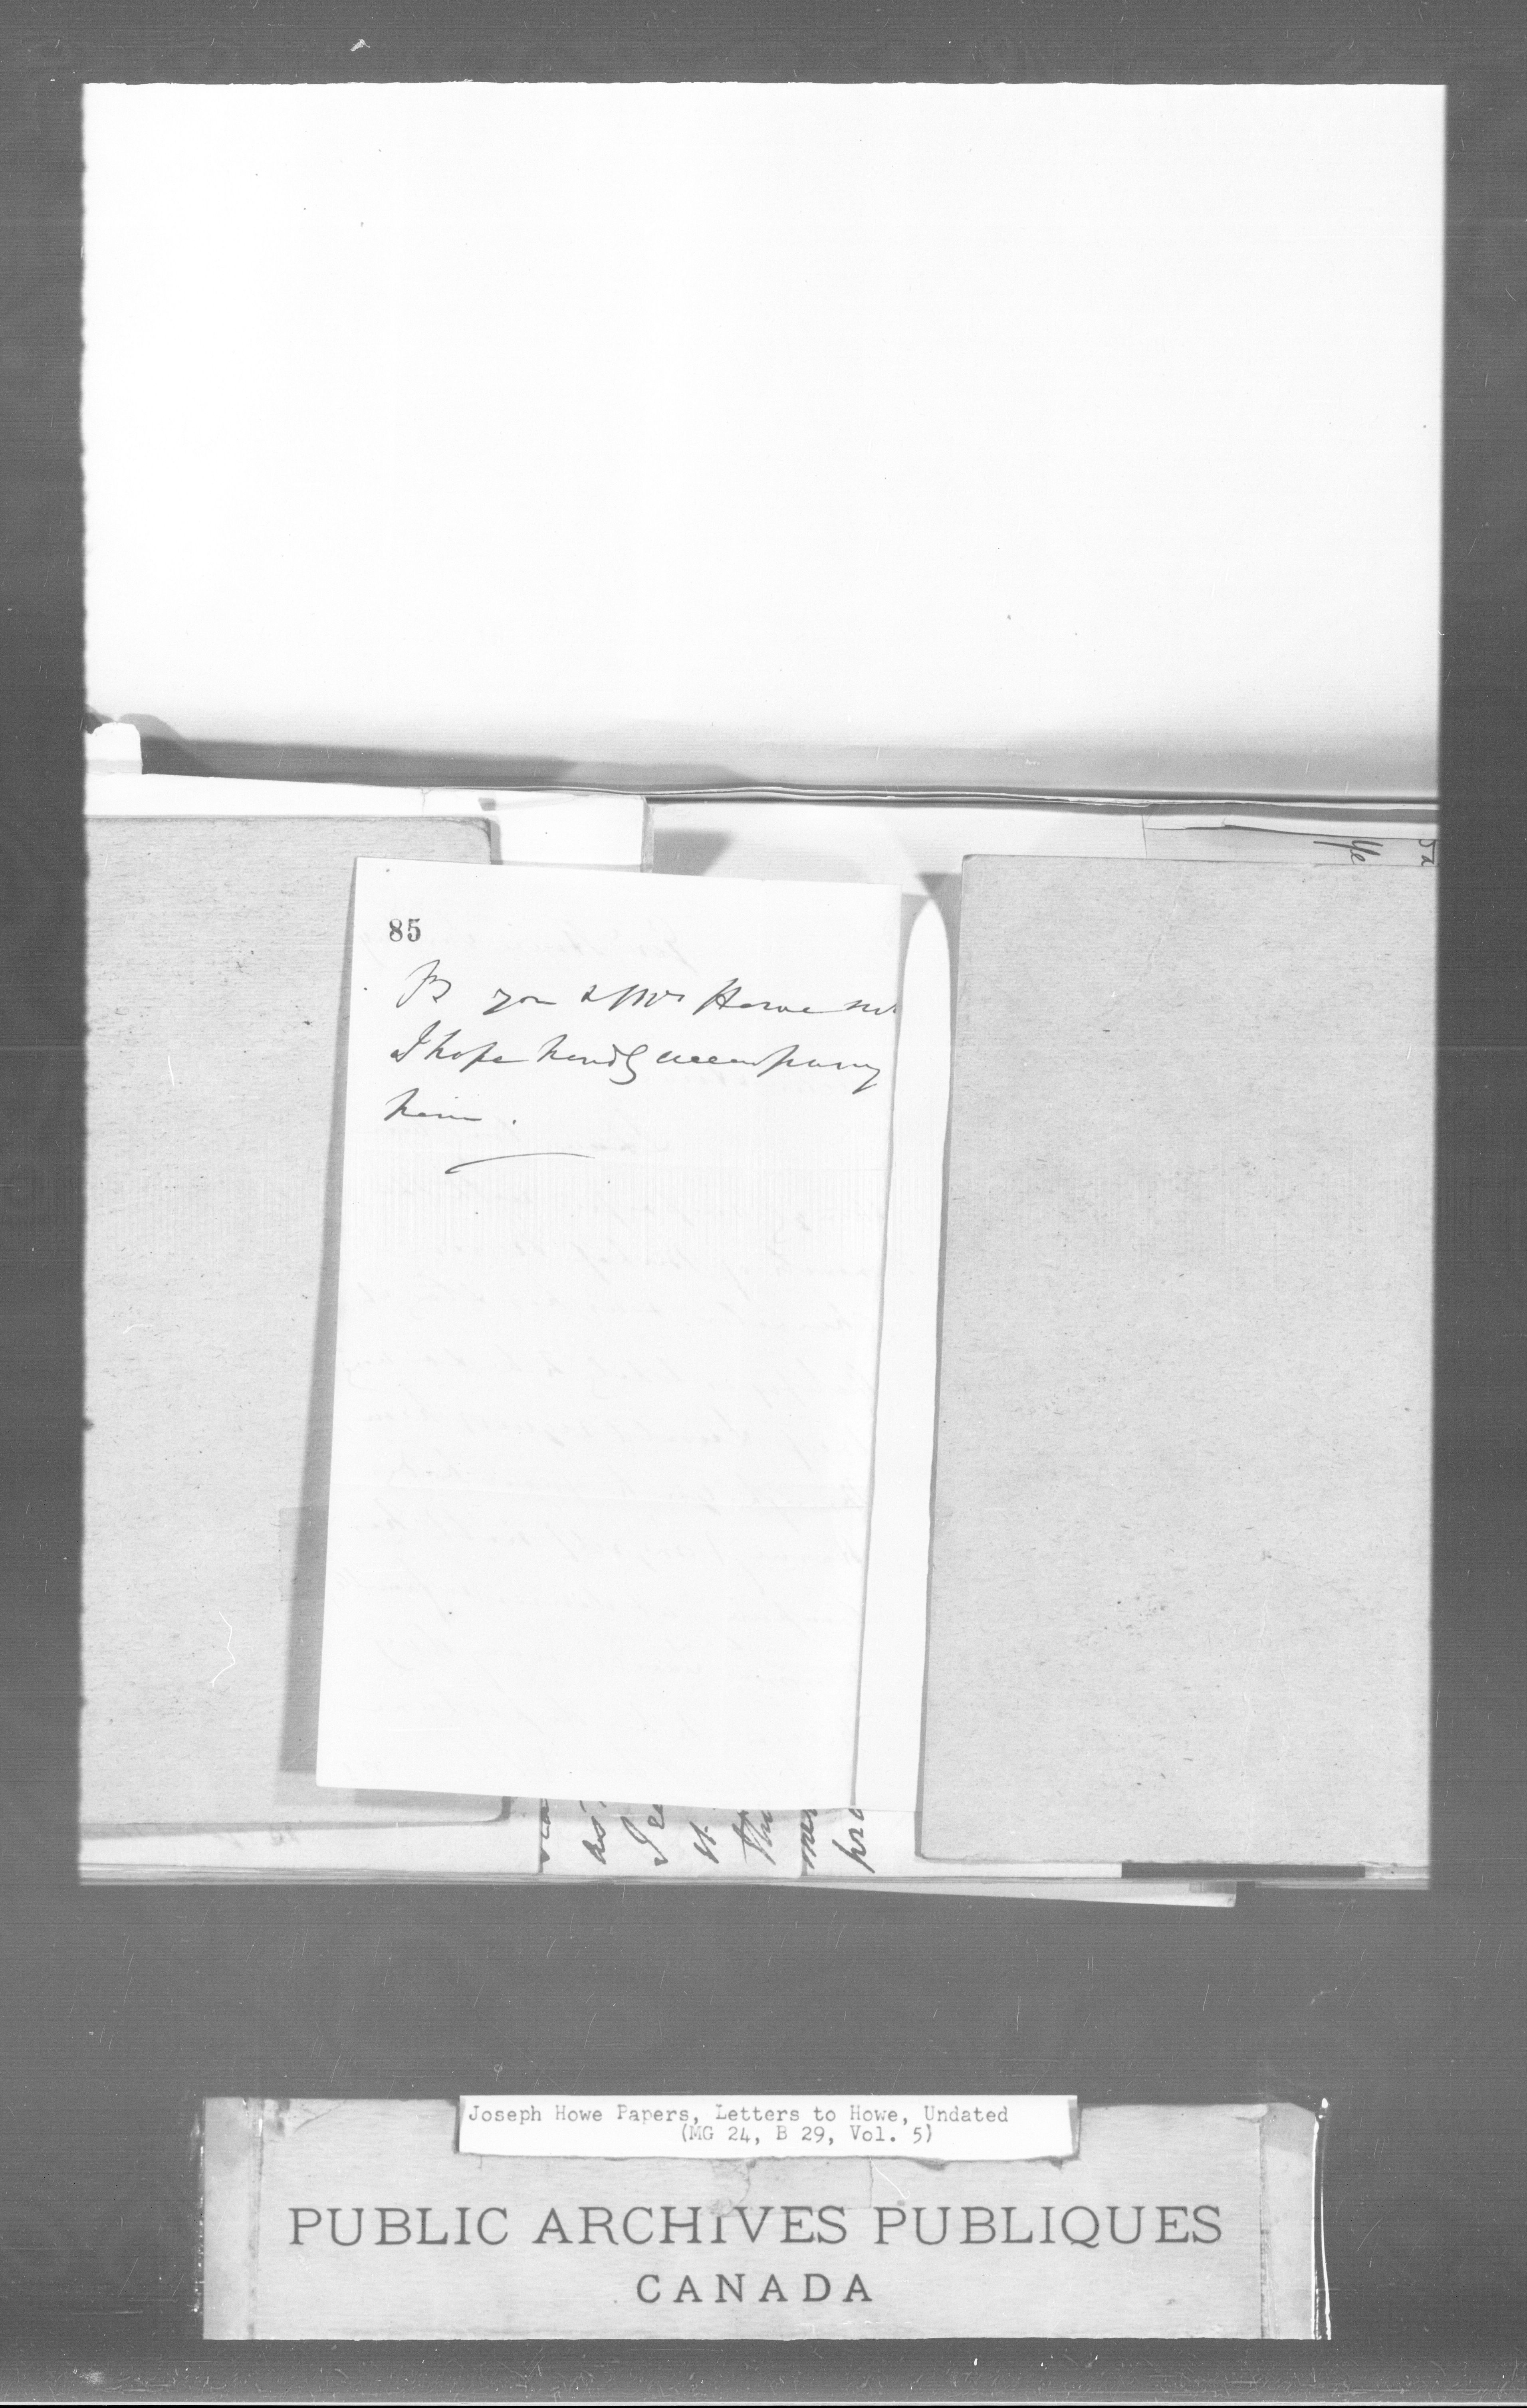 85
you & Mrs Howe
I hope kindly accompany
him.
as
I
Joseph Howe Papers, Letters to Howe, Undated
(MG 24, B 29, Vol. 5)
PUBLIC ARCHIVES PUBLIQUES
CANADA